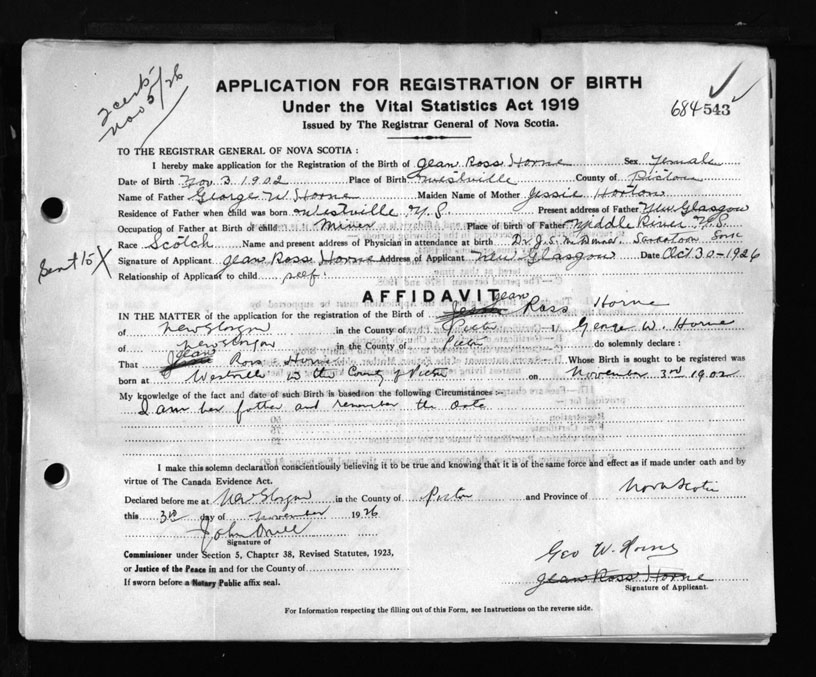 2 certs
Nov 5/26
APPLICATION FOR REGISTRATION OF BIRTH
Under the Vital Statistics Act 1919
Issued by The Registrar General of Nova Scotia.
684 543
TO THE REGISTRAR GENERAL OF NOVA SCOTIA :
I hereby make application for the Registration of the Birth of Jean Ross Horne Sex Female
Date of Birth Nov. 3. 1902 Place of Birth Westville County of Pictou
Name of Father George W. Horne Maiden Name of Mother Jessie Horton
Residence of Father when child was born Westville N.S. Present address of Father New Glasgow
Occupation of Father at Birth of child Miner Place of Birth of Father Middle River N.S.
Race Scotch Name and present address of Physician in attendance at birth Dr. J. S.
Sent 15 X
Signature of Applicant Jean Ross Horne Address of Applicant New Glasgow Date Oct 30 - 1926
Relationship of Applicant to child self.
AFFIDAVIT
Jean
IN THE MATTER of the application for the registration of the Birth of Ross Horne
of New Glasgow in the County of Pictou I/ George W. Horne
of New Glasgow in the County of Pictou do solemnly declare :
Jean
That Ross Horne Whose Birth is sought to be registered was
born at Westville in the County of Pictou on November 3rd 1902
My knowledge of the fact and date of such Birth is based on the following Circumstances :-
I am her father and remember the date
I make this solemn declaration conscientiously believing it to be true and knowing that it is of the same force and effect as if made under oath and by
virtue of The Canada Evidence Act.
Declared before me at New Glasgow in the County of Pictou and Province of Nova Scotia
this 3rd day of November 1926
John
Signature of
Commissioner under Section 5, Chapter 38, Revised Statutes, 1923,
or Justice of the Peace in and for the County of
If sworn before a Notary Public affix seal.
Geo W. Horne
Jean Ross Horne
Signature of Applicant.
For Information respecting the filling out of this Form, see Instructions on the reverse side.